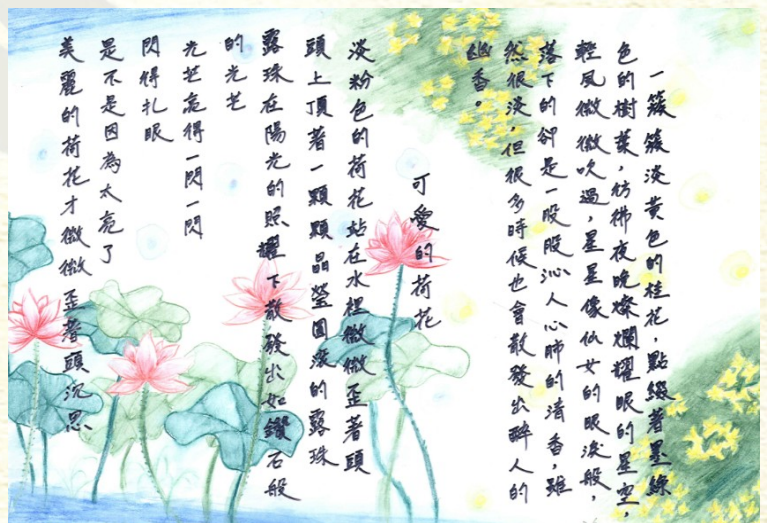 一簇簇淡黃色的桂花，點綴著墨綠
色的樹葉，彷彿夜晚燦爛耀眼的星空，
輕風微微吹過，星星像仙女的眼淚般，
落下的卻是一股股沁人心肺的清香，雖
然很淡，但很多時候也會散發出醉人的
幽香。
可愛的荷花
淡粉色的荷花站在水裡微微歪著頭
頭上頂著一顆顆晶瑩圓滾的露珠
露珠在陽光的照耀下散發出如鑽石般
的光芒
光芒亮得一閃一閃
閃得扎眼
是不是因為太亮了
美麗的荷花才微微歪著頭沉思